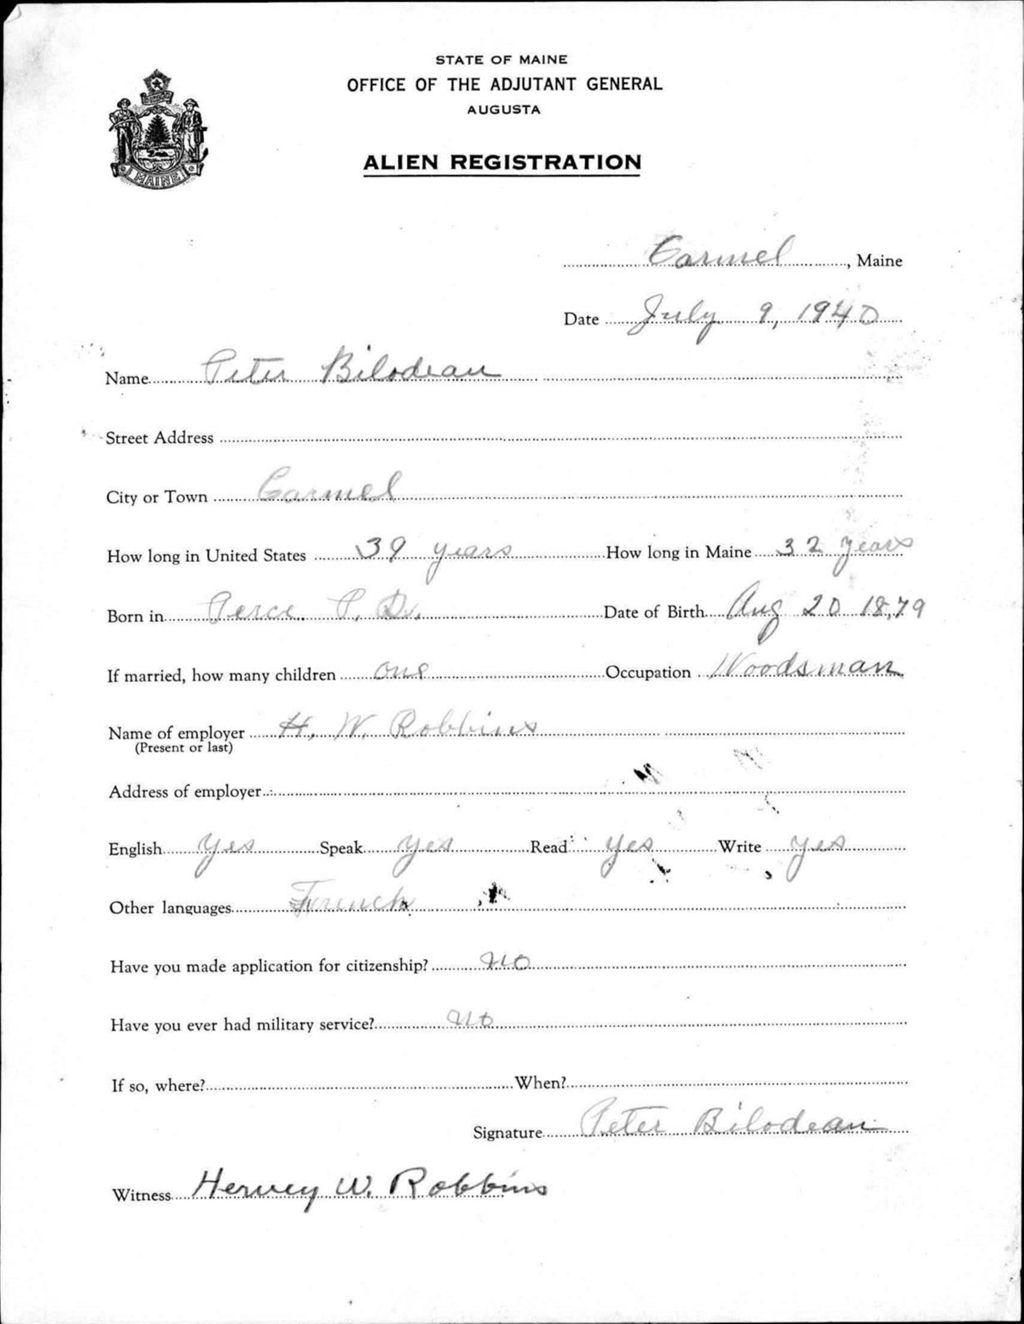 STATE OF MAINE
OFFICE OF THE ADJUTANT GENERAL
AUGUSTA
ALIEN REGISTRATION
MAINE
Carmel, Maine
Date July 9, 1940
Name Peter Bilodeau
Street Address
City or Town Carmel
How long in United States 39 years How long in Maine 32 years
Born in P. Q. Date of Birth Aug 20 1879
If married, how many children one Occupation Woodsman
Name of employer H. W. Robbins
(Present or last)
Address of employer
English yes Speak yes Read yes Write yes
Other languages French
Have you made application for citizenship? No
Have you ever had military service? No
If so, where? When?
Signature Peter Bilodeau
Witness Hervey W. Robbins